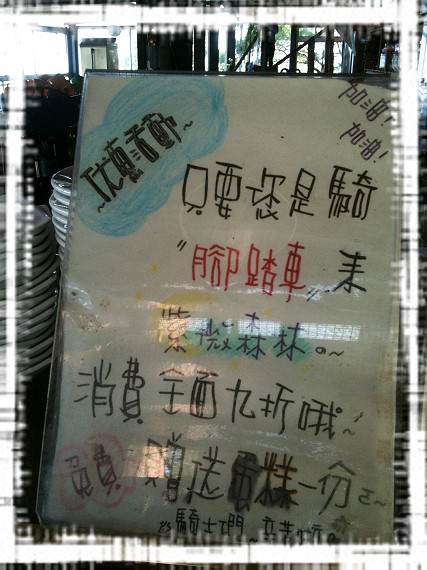 优惠活動~
加油!
加油!
只要您是騎
"腳踏車"来
紫微森林。~
消費全面九折哦~
免費 贈送蛋糕一份
騎士們~